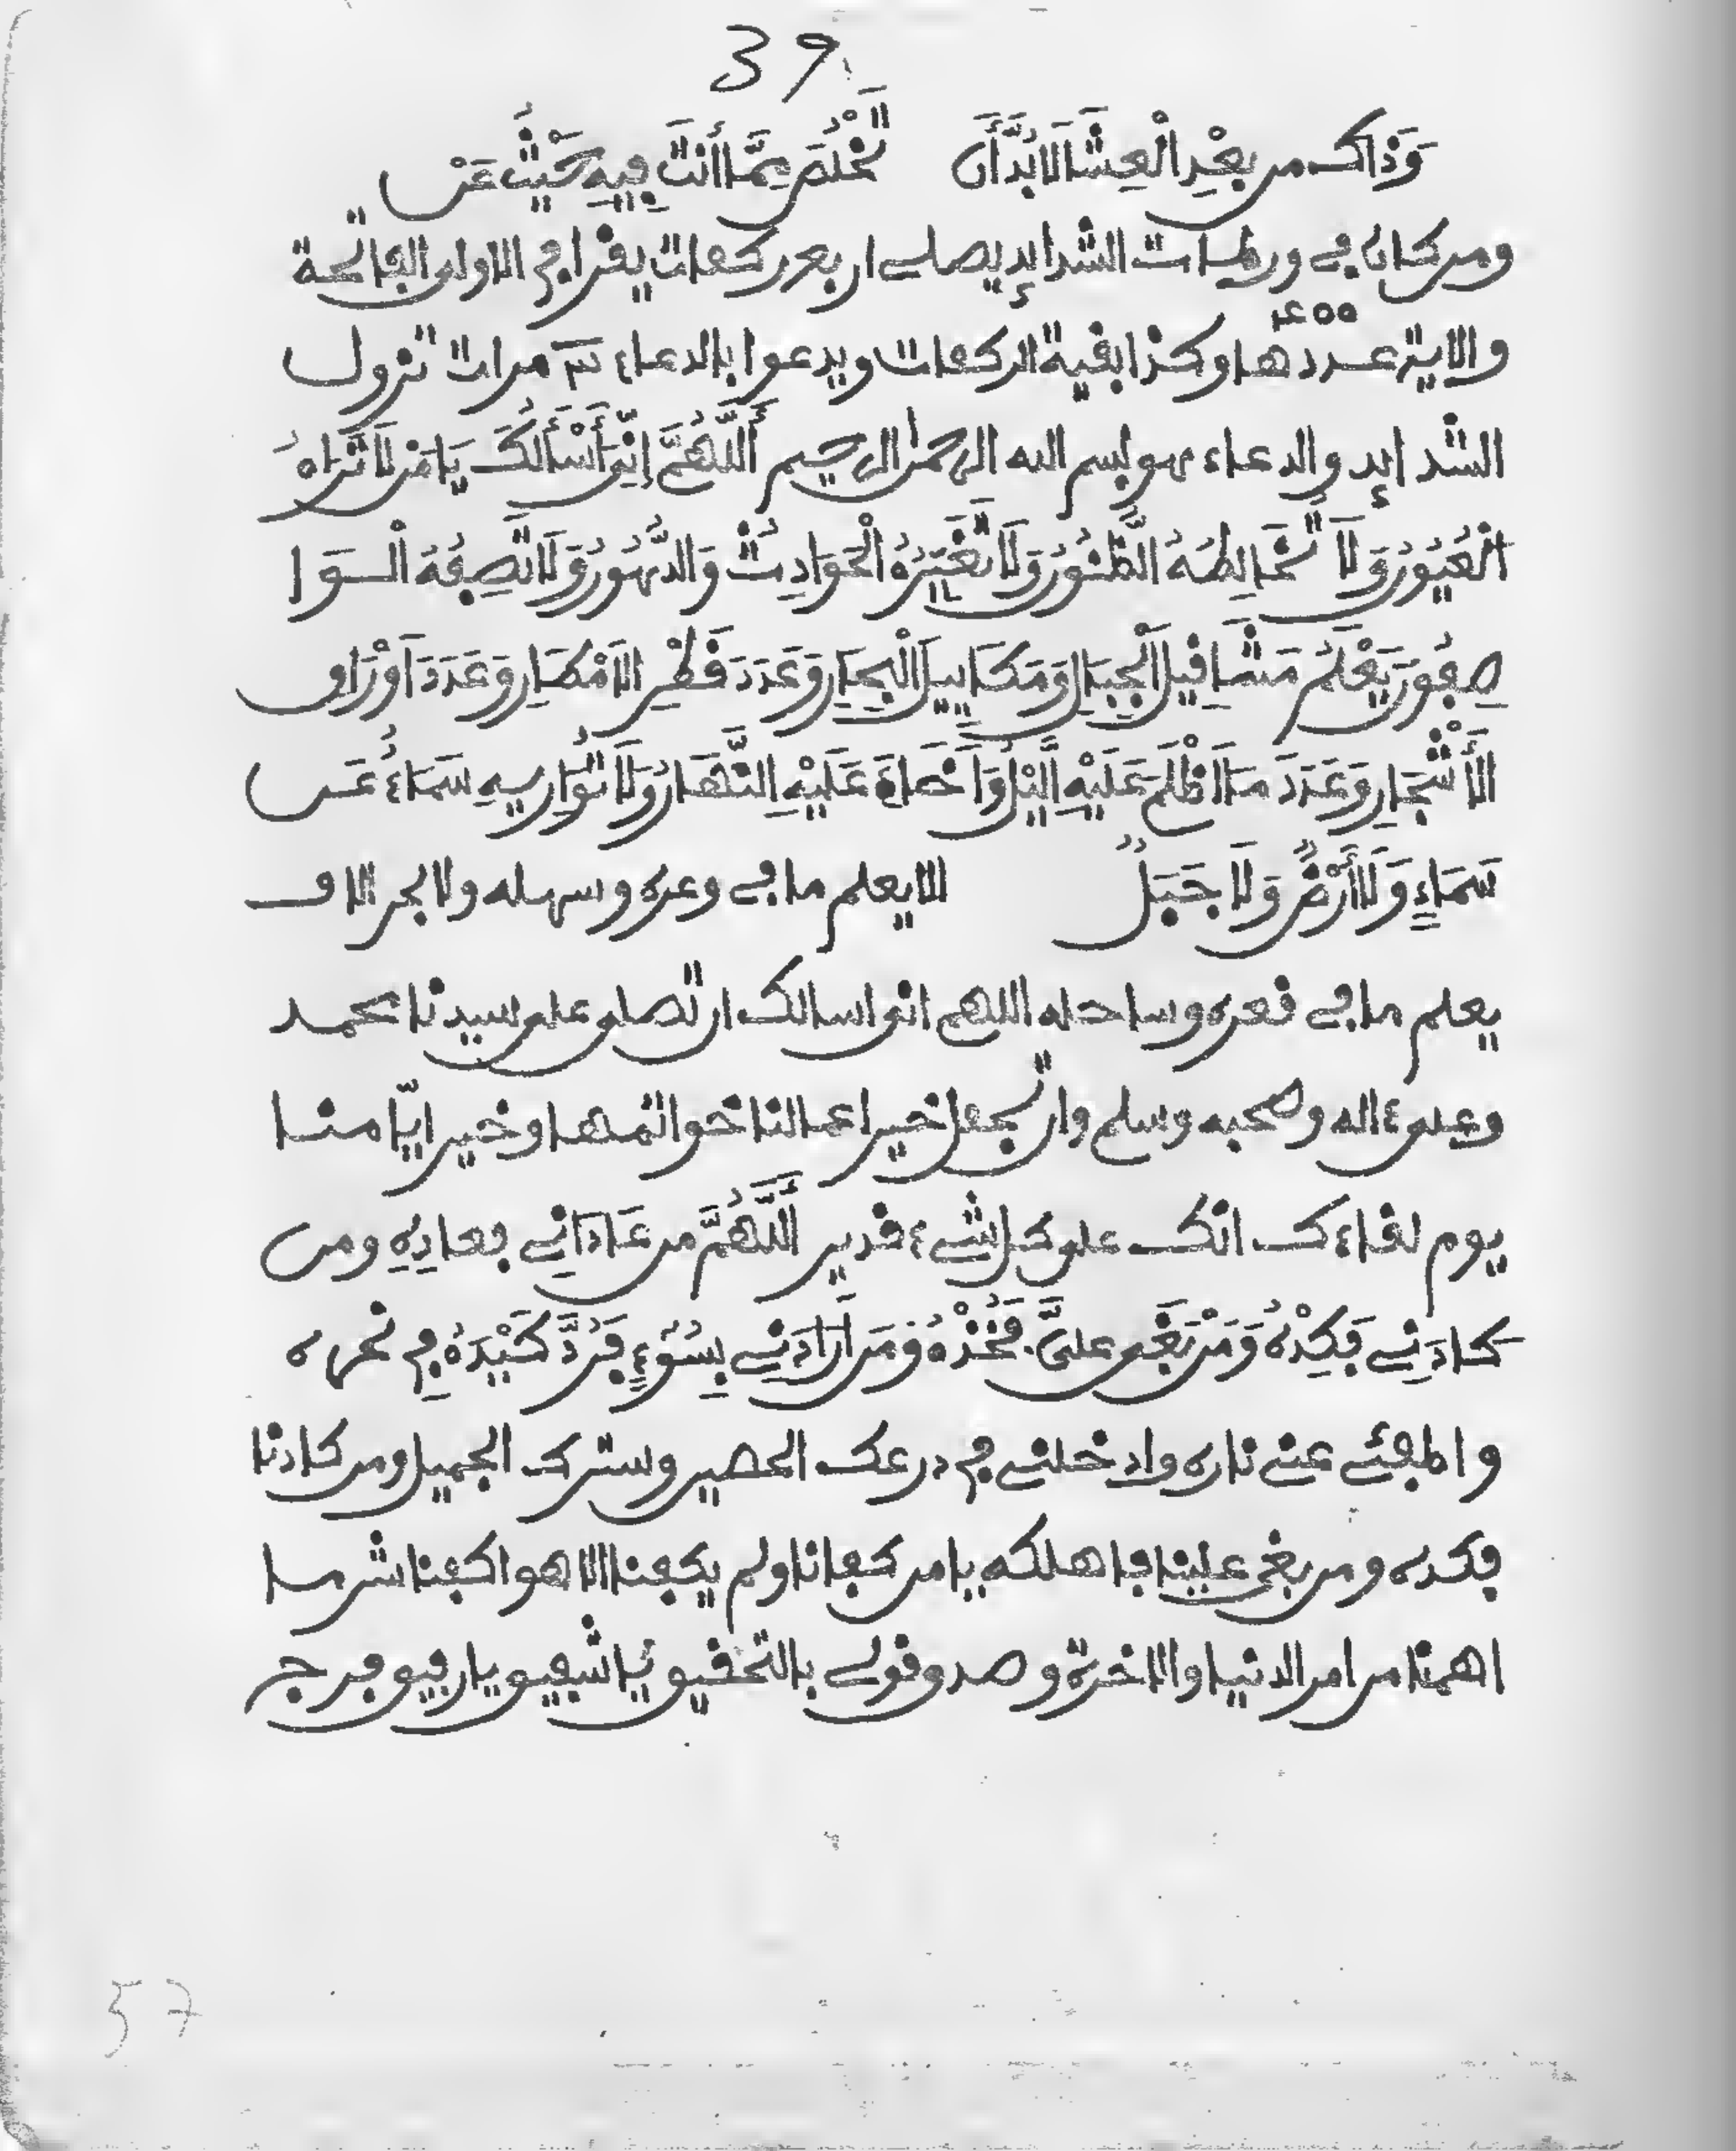 39
وَذَاكَ من بعْدِ الْعِشَا لَابُدَّ أَن تَخْلُصَ مِمَّا أَنتَ فِيهِ حَيْثُ عَنْ
ومن كان في ورطات الشدايد يصلي اربع ركعات يقرا في الاولى الفاتحة
والاية عددها وكذا بقية الركعات ويدعوا بالدعاء مرات تزول
الشدايد والدعاء هو بسم الله الرحمن الرحيم أَللَّهُمَّ إِنِّي أَسْأَلُكَ يَا مَن لَا تَرَاهُ
الْعُيُونُ وَلَا تُخَالِطُهُ الظُّنُونُ وَلَا تُغَيِّرُهُ الْحَوَادِثُ وَالدُّهُورُ وَلَا تَصِفُهُ الْوَا
صِفُونَ يَعْلَمُ مَثَاقِيلَ الْجِبَالِ وَمَكَايِيلَ الْبِحَارِ وَعَدَدَ قَطْرِ الْامْطَارِ وَعَدَدَ اَوْرَاقِ
الْأَشْجَارِ وَعَدَدَ مَا اَظْلَمَ عَلَيْهِ الَّيْلُ وَاَضَاءَ عَلَيْهِ النَّهَارُ وَلَا تُوَارِيهِ سَمَاءٌ عَن
سَمَاءٍ وَلَا أَرْضٌ وَلَا جَبَلٌ الا يعلم ما في وعره وسهله ولا بحر الا و
يعلم ما في قعره وساحله اللهم اني اسالك ان تصلي على سيدنا محمد
وعلى ءاله وصحبه وسلم وان تجعل خير اعمالنا خواتمها وخير ايّامنا
يوم لقاءك انك على كل شيء قدير أَللَّهُمَّ من عَادَانِي فعادِهِ ومن
كَادَنِي فَكِدْهُ وَمَنْ بَغَى عليَّ فَخُذْهُ وَمَن اَرَادَنِي بِسُوءٍ فَرُدَّ كَيْدَهُ فِي نحره
واطفئ عني ناره وادخلني في درعك الحصين وسترك الجميل ومن كادنا
فكده ومن بغى علينا فاهلكه يا من كفانا ولم يكفنا الا هو اكفنا شر ما
اهمنا من امر الدنيا والاخرة وصدق قولي بالتحقيق يا شفيق يا رفيق فرج
57